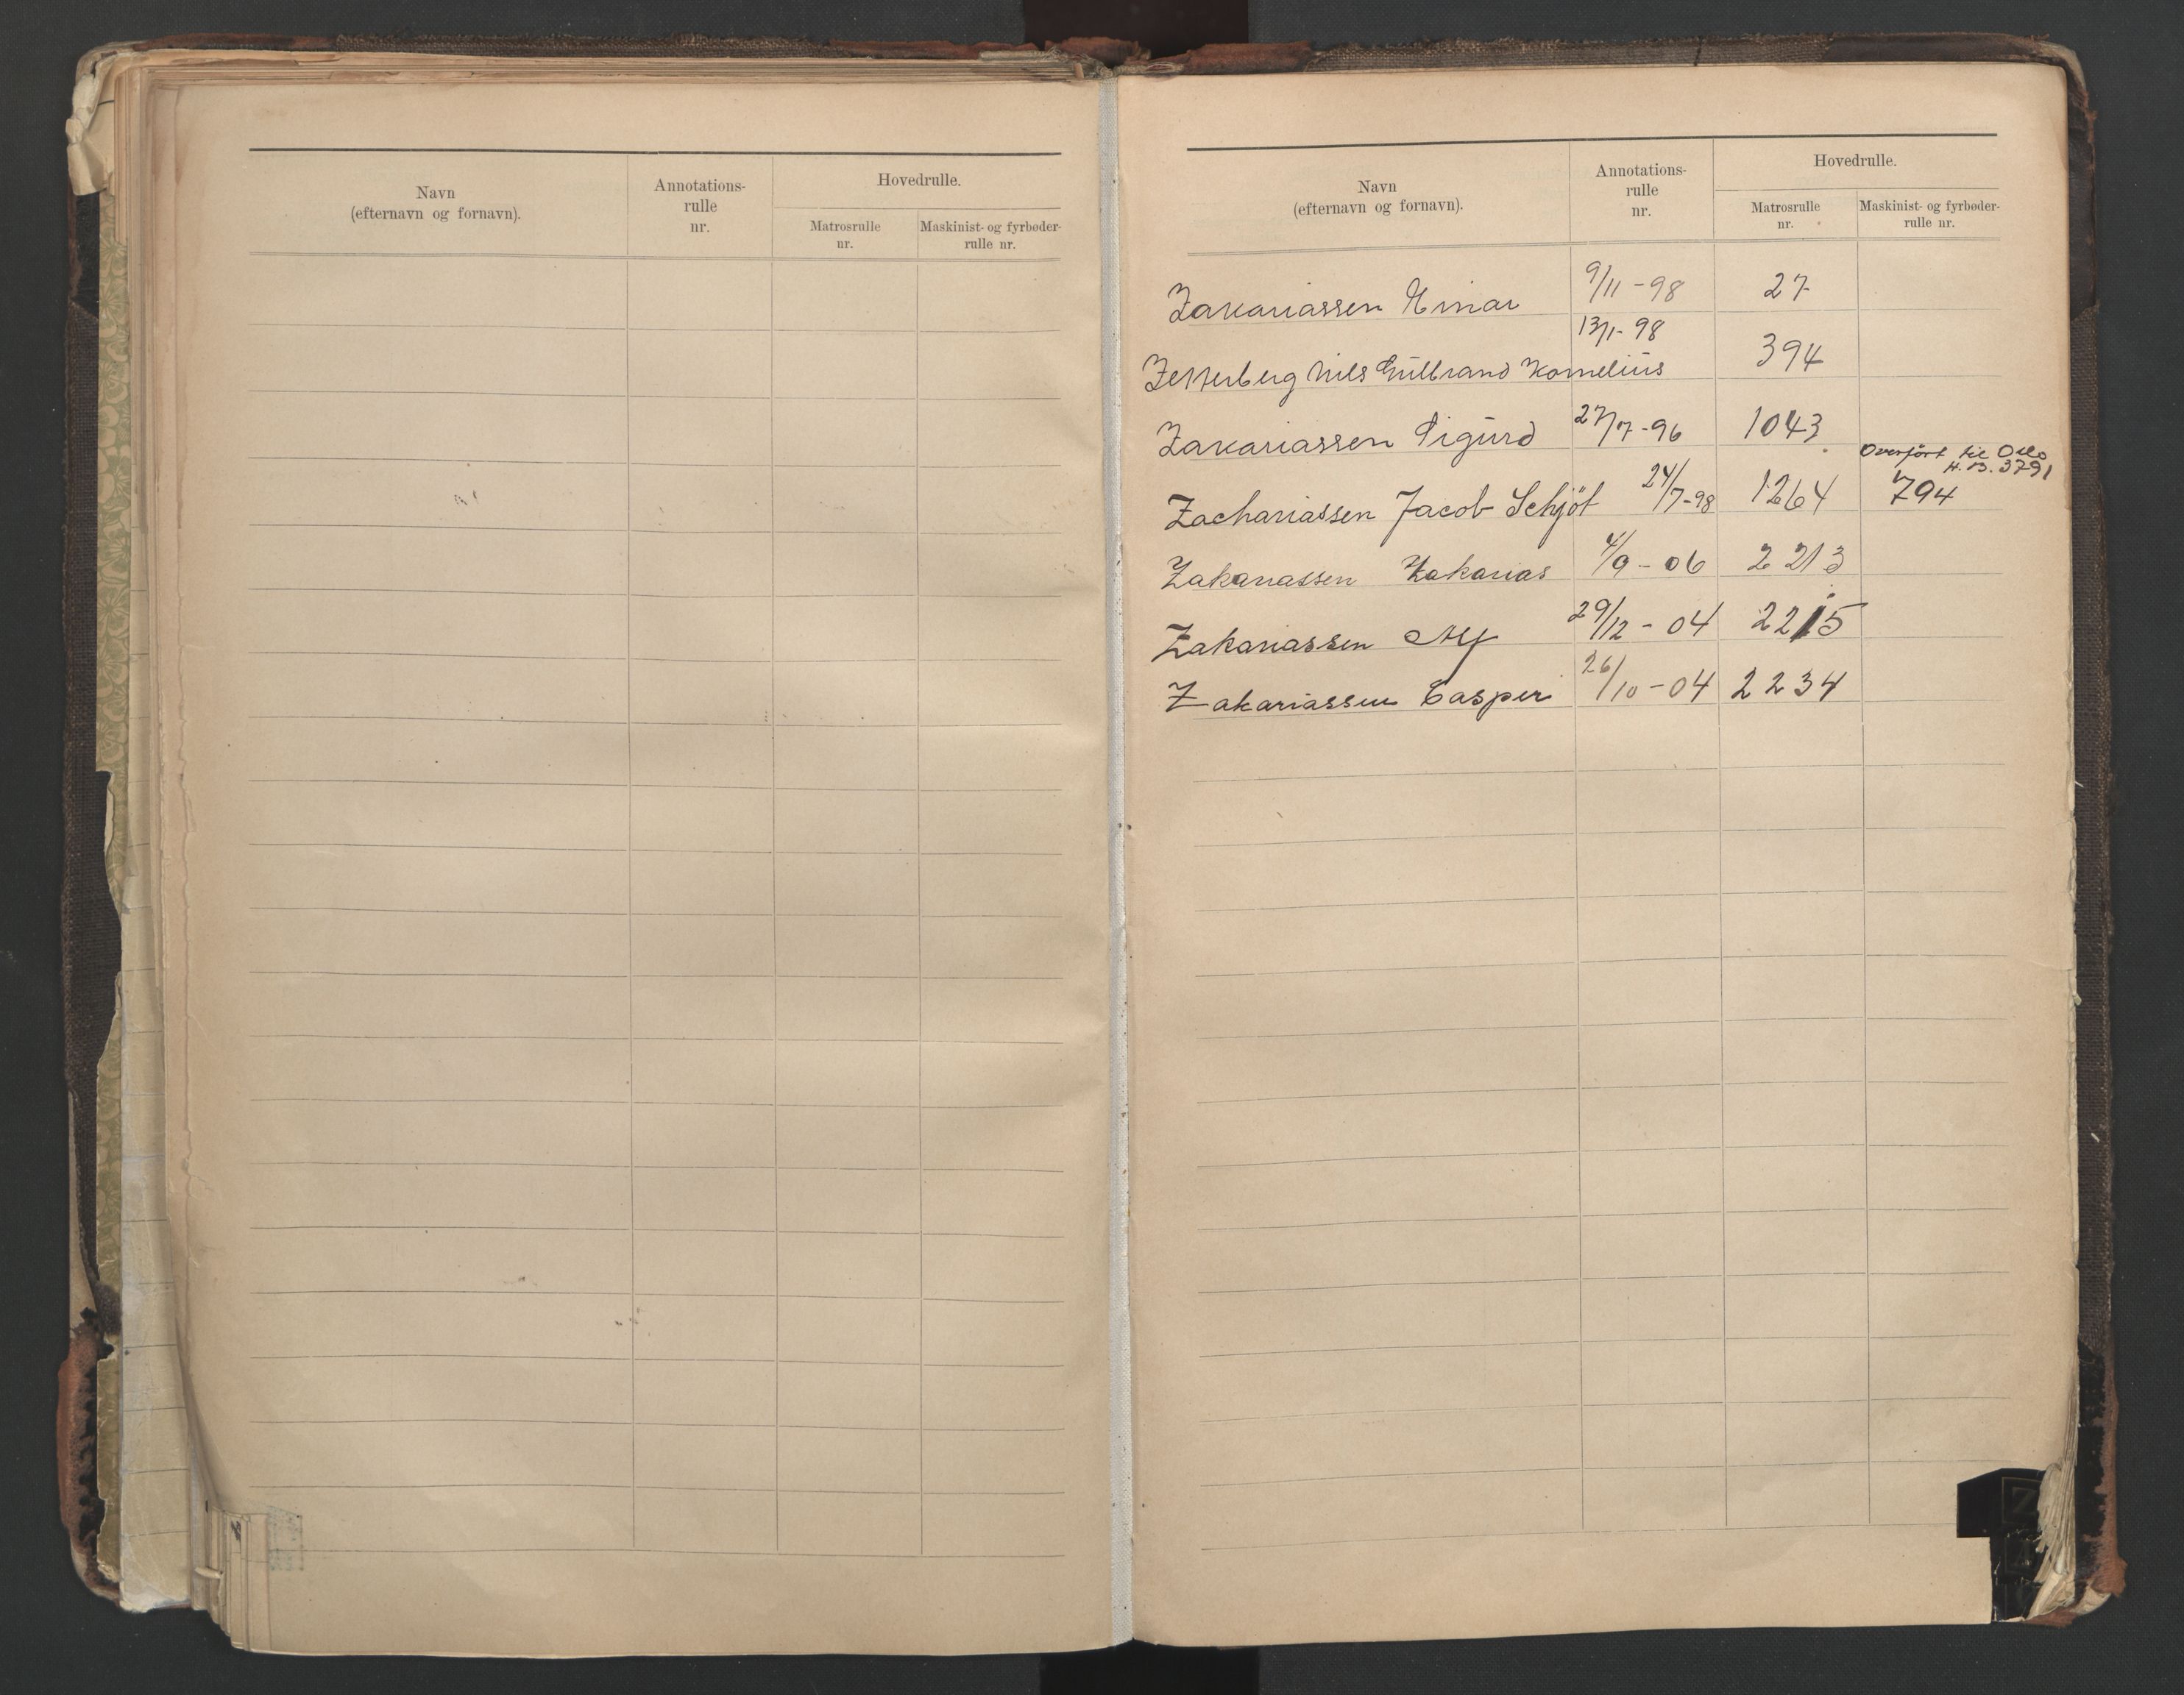 Navn
(efternavn og fornavn).
Annotations-
rulle
nr.
Hovedrulle.
Matrosrulle
nr.
Maskinist- og fyrbøder-
rulle nr.
Navn
(efternavn og fornavn).
Annotations-
rulle
nr.
Hovedrulle.
Matrosrulle
nr.
Maskinist- og fyrbøder-
rulle nr.
Zakariassen Einar 9/11-98 27
Zetterberg Nils Gulbrand Kornelius 13/1-98 394
Zakariassen Sigurd 27/7-96 1043
Overført til Oslo
H.B. 3791
Zachariassen Jacob Schjöt 24/7-98 1264 794
Zakariassen Zakarias 4/9-06 2213
Zakariassen Alf 29/12-04 2215
Zakariassen Casper 26/10-04 2234
Z